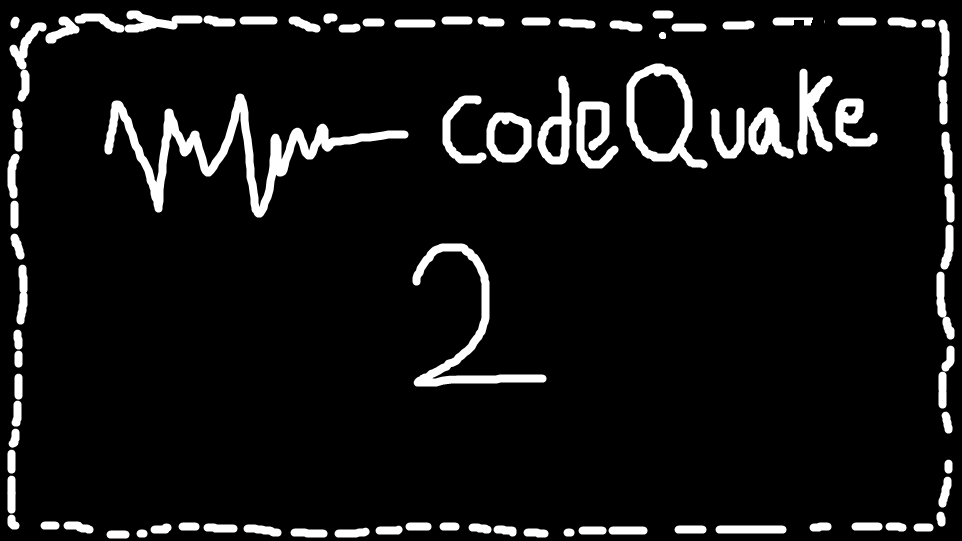 codeQuake
2